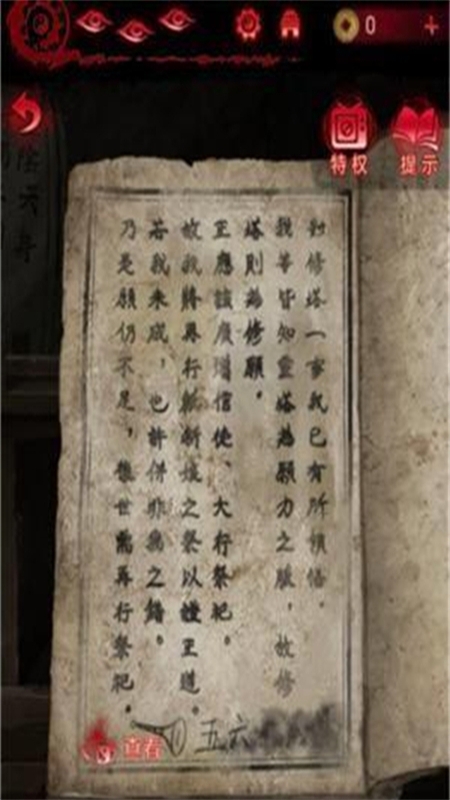 0
特权 提示
修塔一事我已有所領悟。
我等皆知靈塔為願力之脈，故修
塔則為修願。
王應該廣增信徒、大行祭祀。
故我將再行新娘之祭以王道。
若我未成，也許併非我之錯。
乃是願仍不足，後世需再行祭祀。
查看
五六